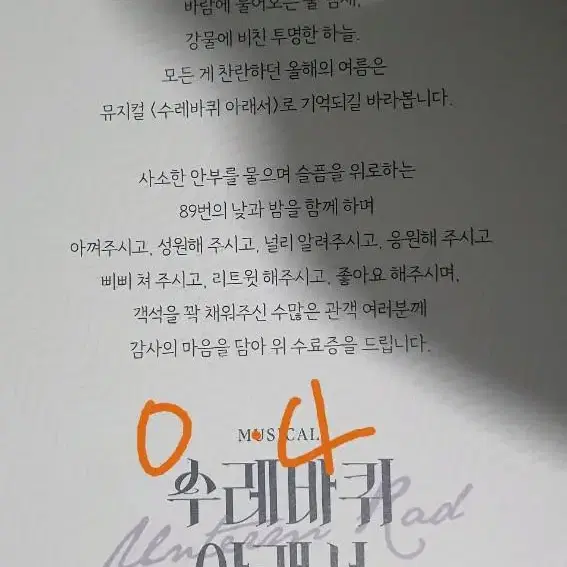 바람에 불어오는 풀 냄새,
강물에 비친 투명한 하늘.
모든 게 찬란하던 올해의 여름은
뮤지컬 <수레바퀴 아래서>로 기억되길 바라봅니다.
사소한 안부를 물으며 슬픔을 위로하는
89번의 낮과 밤을 함께 하며
아껴주시고, 성원해 주시고, 널리 알려주시고, 응원해 주시고
삐삐 쳐 주시고, 리트윗 해주시고, 좋아요 해주시며,
객석을 꽉 채워주신 수많은 관객 여러분께
감사의 마음을 담아 위 수료증을 드립니다.
0.4
MUSICAL
수레바퀴
Unterm Rad
아래서